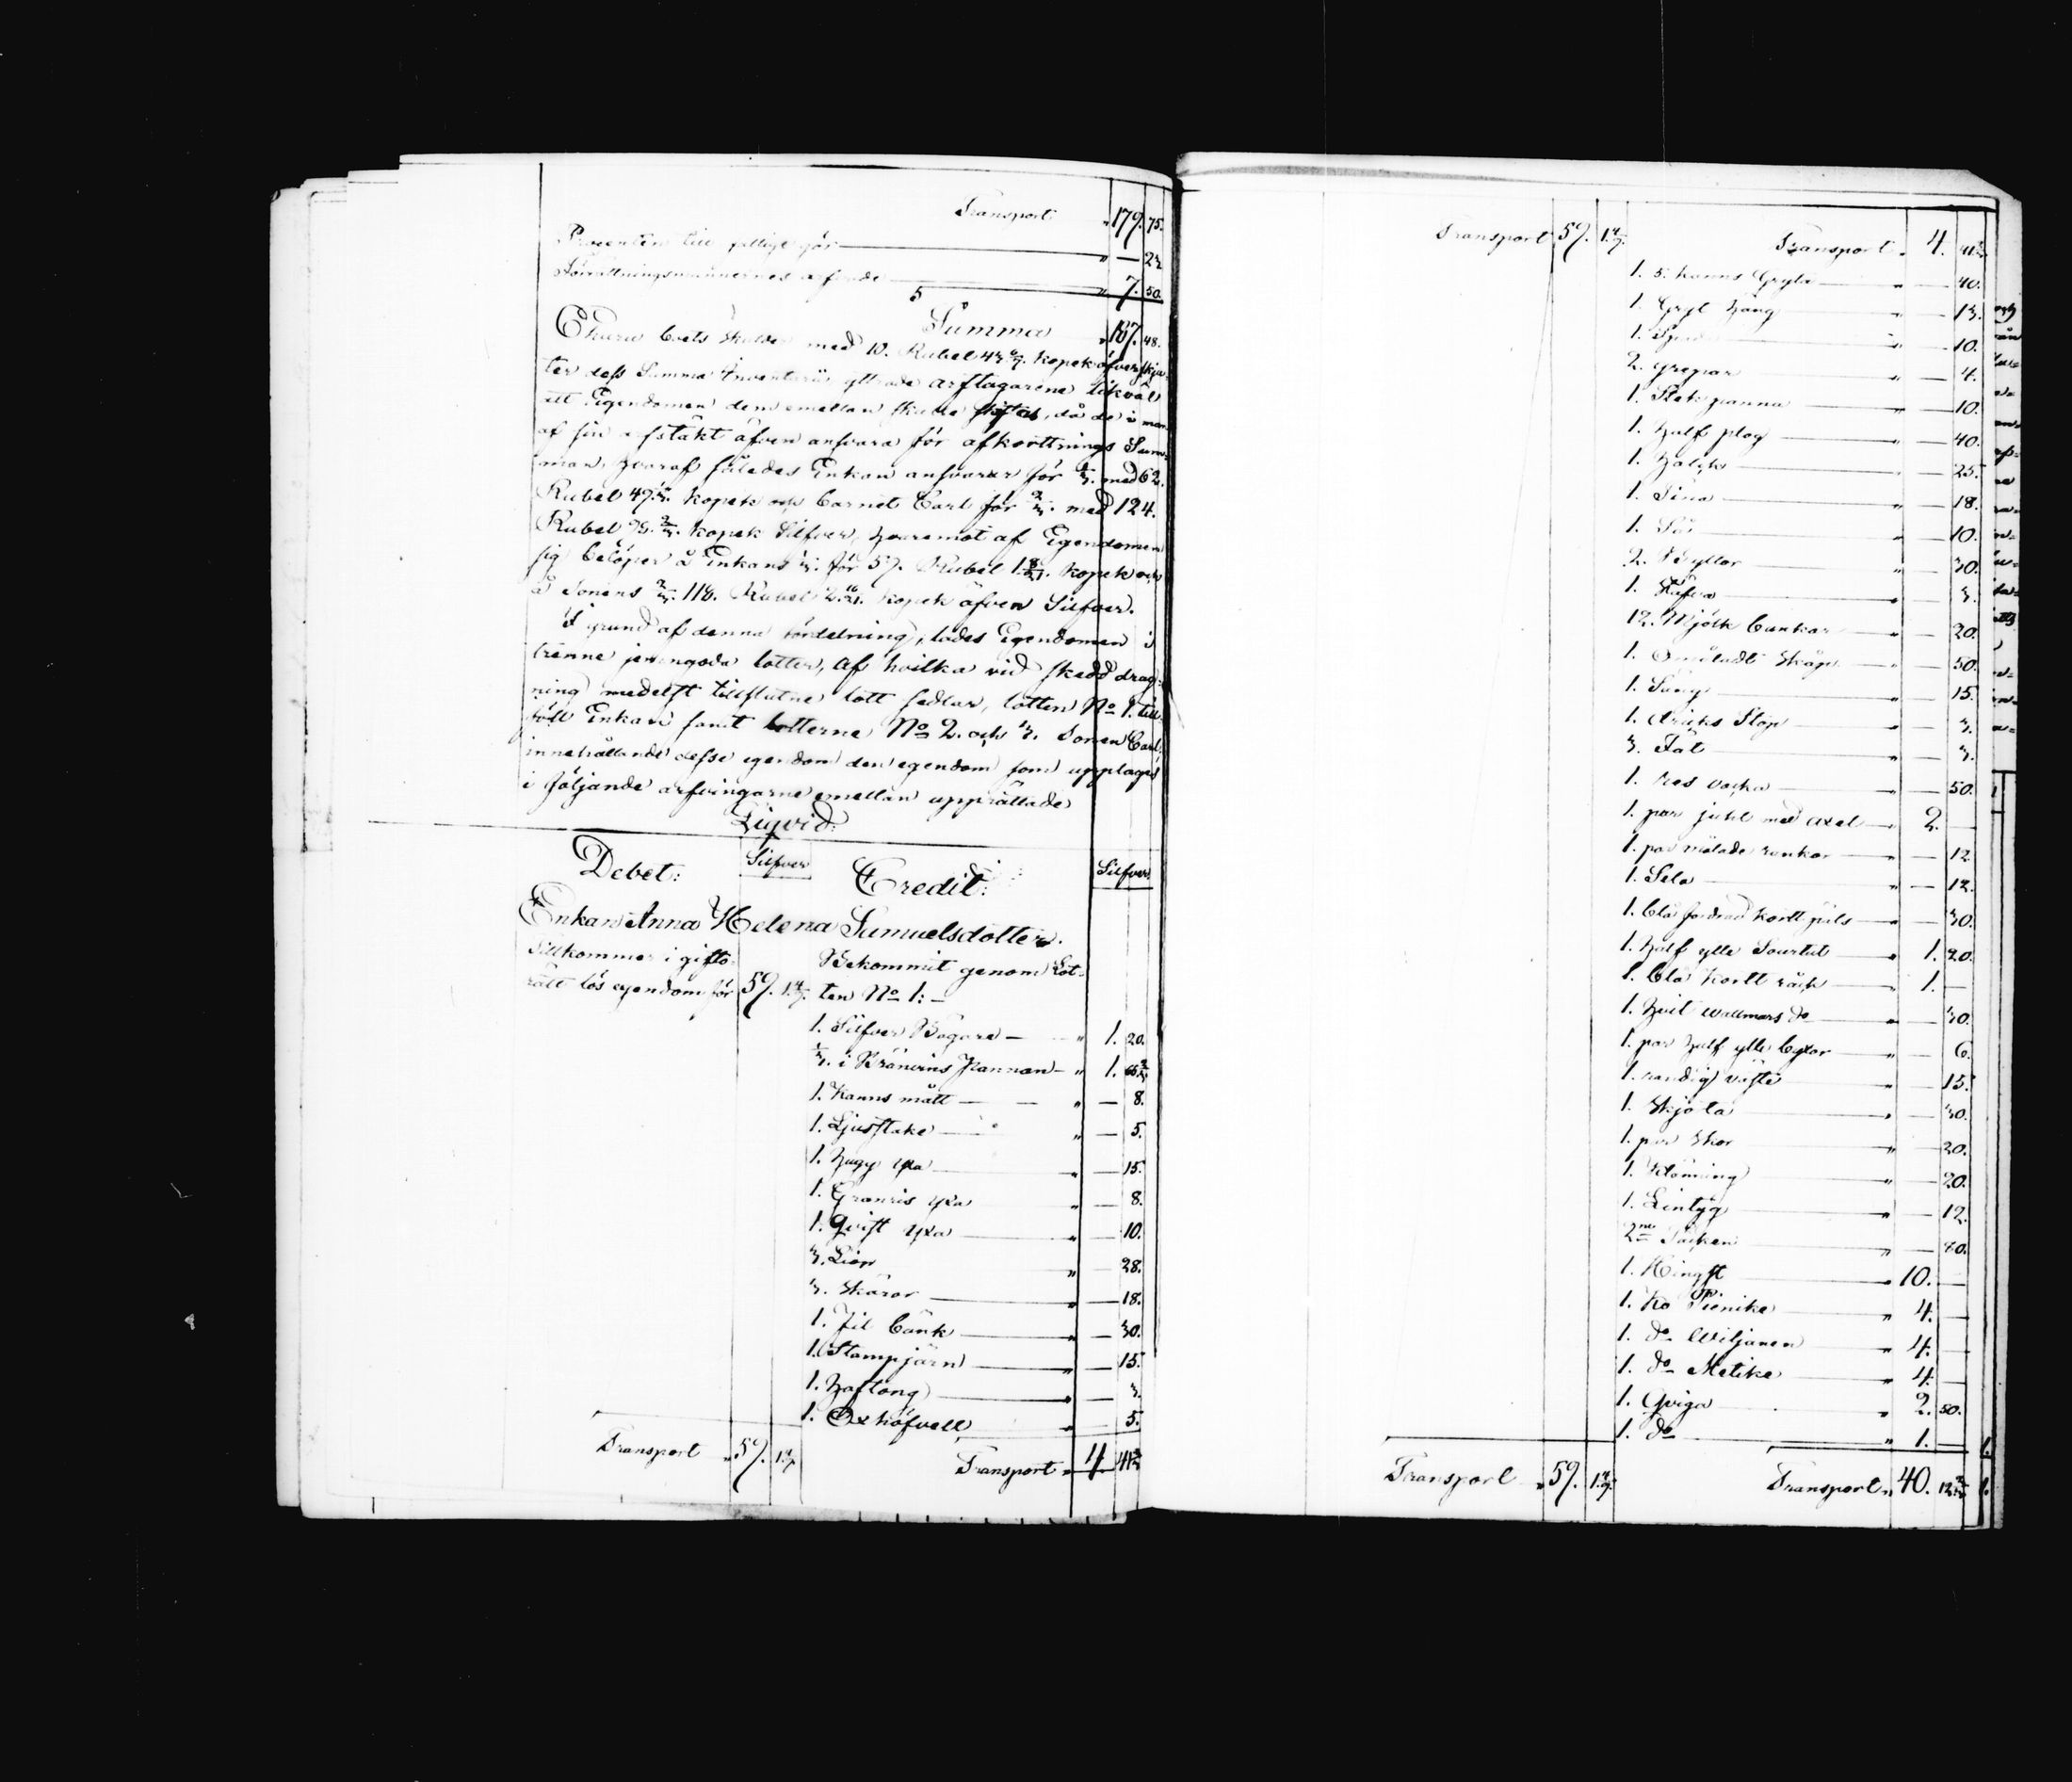 Transport " 179. 75.
Procenten till fattige gör " — 23.
Förrättningsmännernes arfvode " 7. 50.
Summa " 187. 48.
Ehuru boets skulder med 10. Rubel 43 6/7. kopek öfverskju-
ter dess Summa Inventarii yttrade arftagarene likväl
att Egendomen dem emellan skulle skiftas, då de i mon
af sin arfstäkt äfven ansvara för afkorttnings Sum-
man, hvaraf således Enkan ansvarar för 1/3. med 62.
Rubel 49 1/3. kopek och barnet Carl för 2/3. med 124.
Rubel 98 2/3. kopek Silfver, hvaremot af Egendomen
sig belöper å Enkans 1/3. för 59. Rubel 1 8/21. kopek och
å Sonens 2/3. 118. Rubel 2 16/21. kopek äfven Silfver.
I grund af denna fördelning, lades Egendomen i
trenne jemngoda lotter, af hvilka vid skedd drag-
ning medelst tillslutne lott sedlar, lotten No 1. till-
föll Enkan samt lotterne No 2. och 3. Sonen Carl,
innehållande desse egendom den egendom som upptages
i följande arfvingarne emellan upprättade
Liqvid:
Debet: Silfver Credit: Silfver
Enkan Anna Helena Samuelsdotter.
Tillkommer i gifto-
rätt lös egendom för 59. 1 4/7.
Bekommit genom Lot-
ten No 1: —
1. Silfver Bägare — " 1. 20.
1/3. i Brännvins Pannan — " 1. 66 2/3
1. Kanns mått — " — 8.
1. Ljusstake — " — 5.
1. hugg yxa " — 15.
1. Granris yxa " — 8.
1. Qvist yxa " — 10.
3. Liar " — 28.
3. Skäror " — 18.
1. Fil bänk " — 30.
1. Stampjärn " — 15.
1. Haftång " — 3.
1. Oxhöfvell " 5.
Transport " 59. 1 4/7 Transport " 4. 41 2/3
Transport 59. 1 4/7. Transport " 4. 41 2/3
1. 5. kanns Gryta " — 40.
1. Gryt häng " — 13.
1. " — 10.
2. grepar " — 4.
1. Stekpanna " — 10.
1. half plog " — 40.
1. " — 25.
1. " — 18.
1. Så " — 10.
2. Byttor " — 30.
1. " — 3.
12. Mjölk bunkar " — 20.
1. Omåladt skåp " — 50.
1. Säng " — 15.
1. Stop " — 3.
3. Fat " — 3.
1. res " — 50.
1. par hjuhl med axel " 2. —
1. par målade " — 12.
1. Sela " — 12.
1. blå fodrad kortt päls " — 30.
1. half ylle Sourtut " 1. 20.
1. blå kortt råck " 1. —
1. hvit wallmars do " — 30.
1. par half ylle byxor " — 6.
1. randig väste " — 15.
1. Skjorta " — 30.
1. par skor " — 20.
1. " — 20.
1. Lintyg " — 12.
2ne Säcken " — 20.
1. Hingst " 10. —
1. Ko Pienike " 4. —
1. do Wiljanen " 4. —
1. do Metike " 4. —
1. Qviga " 2. 50.
1. do " 1. —
Transport " 59. 1 4/7. Transport " 40. 12 2/3